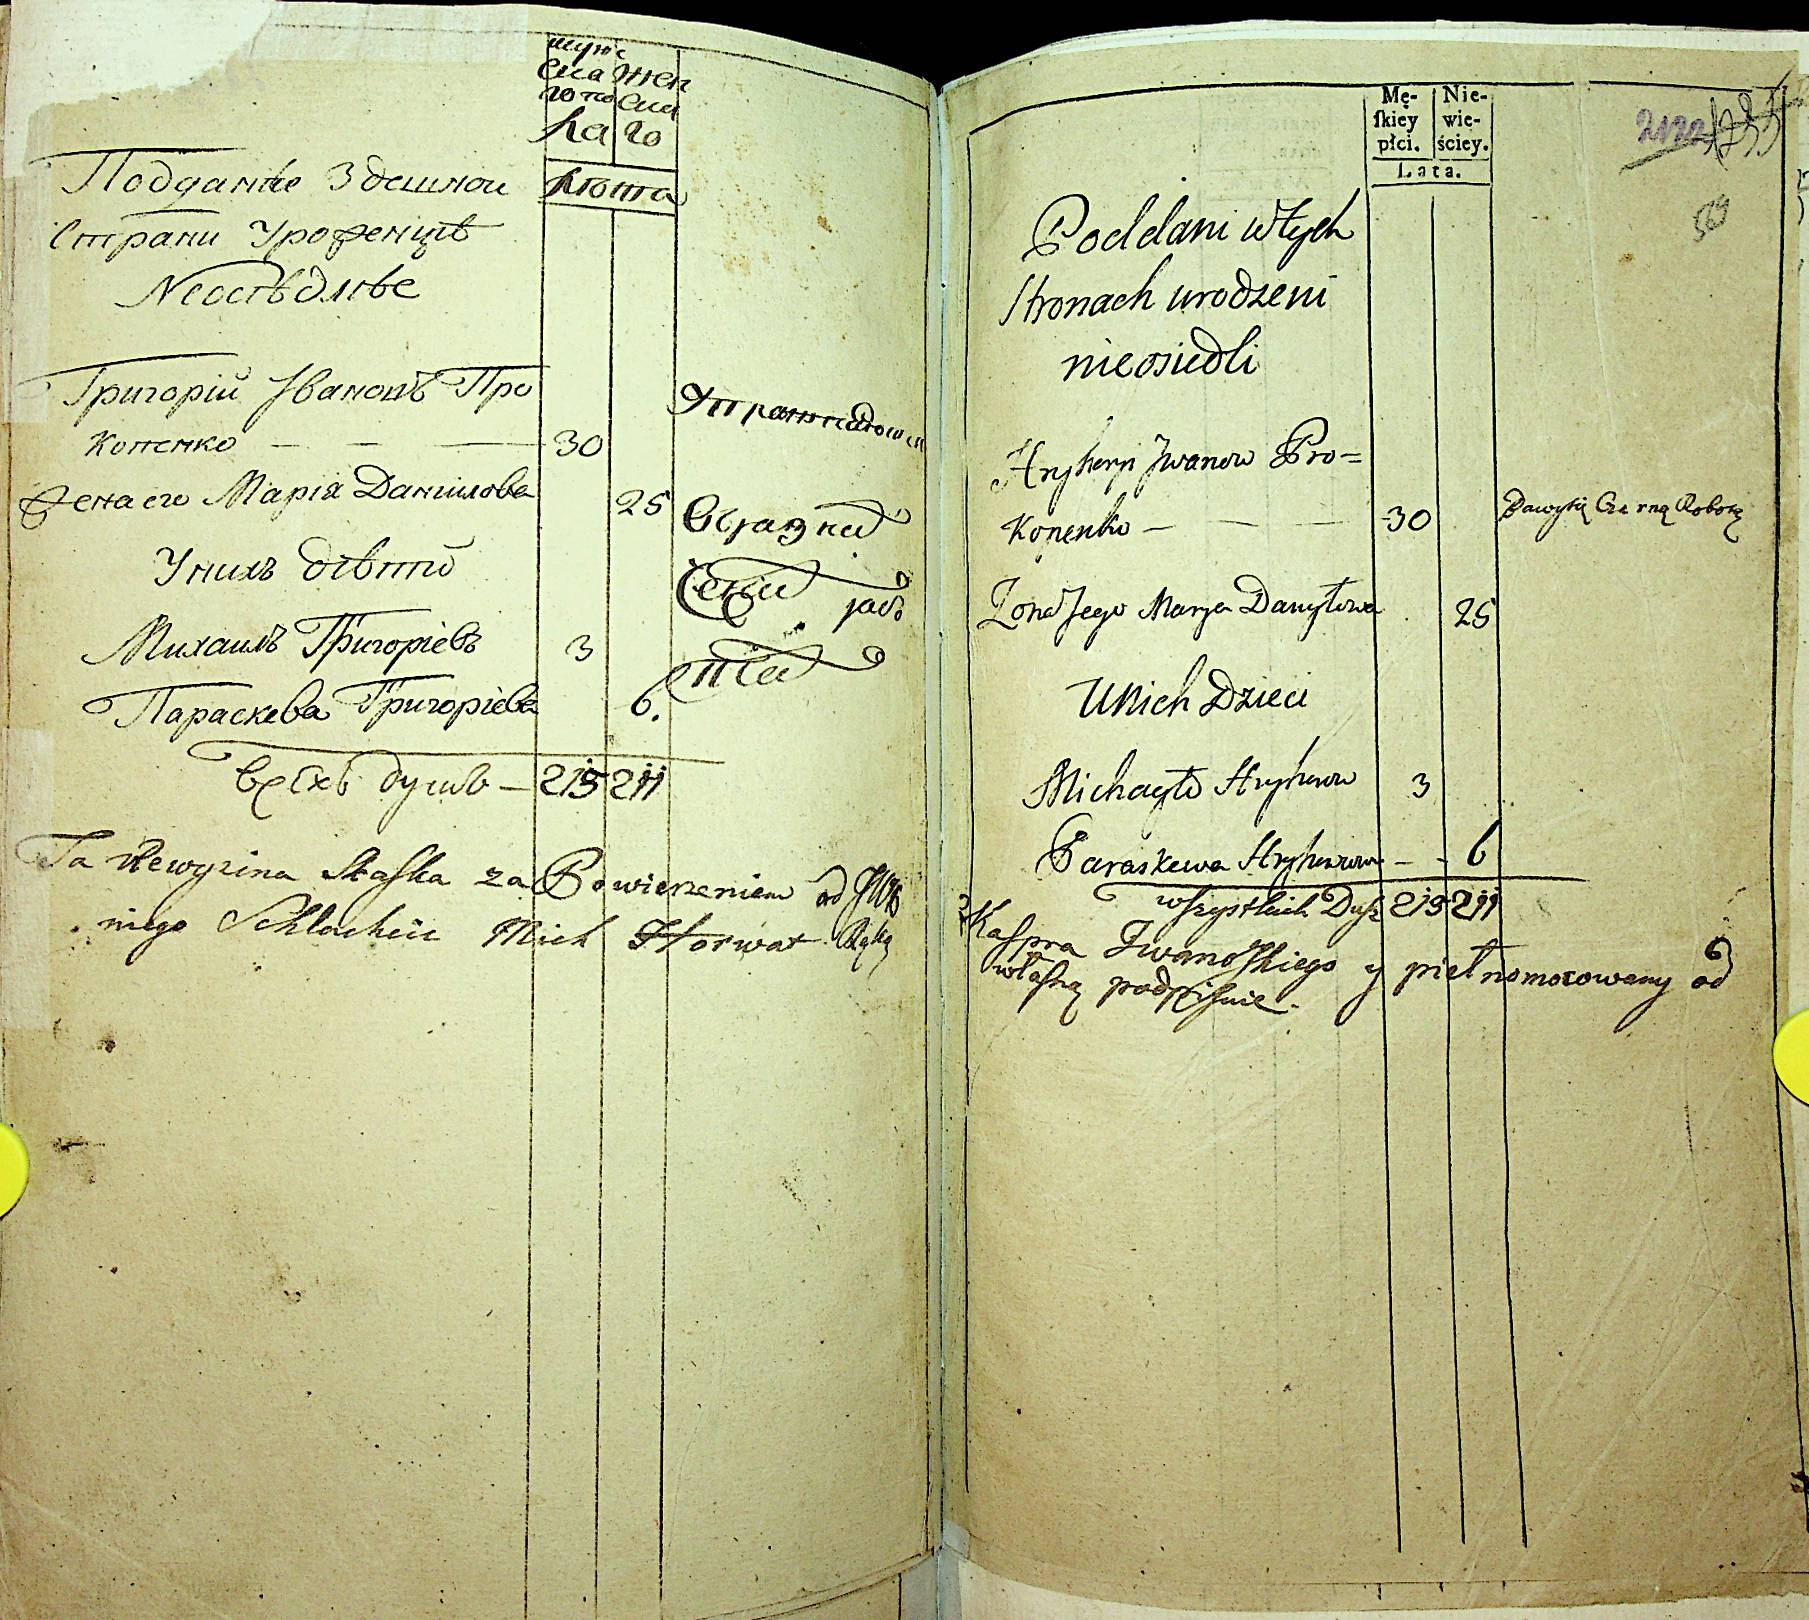 муже
ска жен
го по ска
ла го
люта
Подданіе Здешнои
Страни Уроженцѣ
Неосѣдліе
Григорій Івановъ Про
копенко — — — 30
Жена его Марія Данилова 25
У нихъ дѣтти
Михаилъ Григоріевъ 3
Параскева Григоріева 6.
всѣхъ душъ — 215 211
Ta Rewyzina Skaska za Powierzeniem od JW
niego Schlachcic Mich Horwat Ręką
Mę-
skiey
płci.
Nie-
wie-
ściey.
Lata.
2122
569
Poddani w tych
Stronach urodzeni
nieosiedli
Hryhery Jwanow Pro=
Kopenko — — — 30
Zona Jego Marya Danyłowa 25
U Nich Dzieci
Michayło Hryherow 3
Paraskewa Hryherowa — - 6
wszystkich Dusz 215 211
Kaspra Iwanoskiego y piełnomocowany od
własną podpisuie.